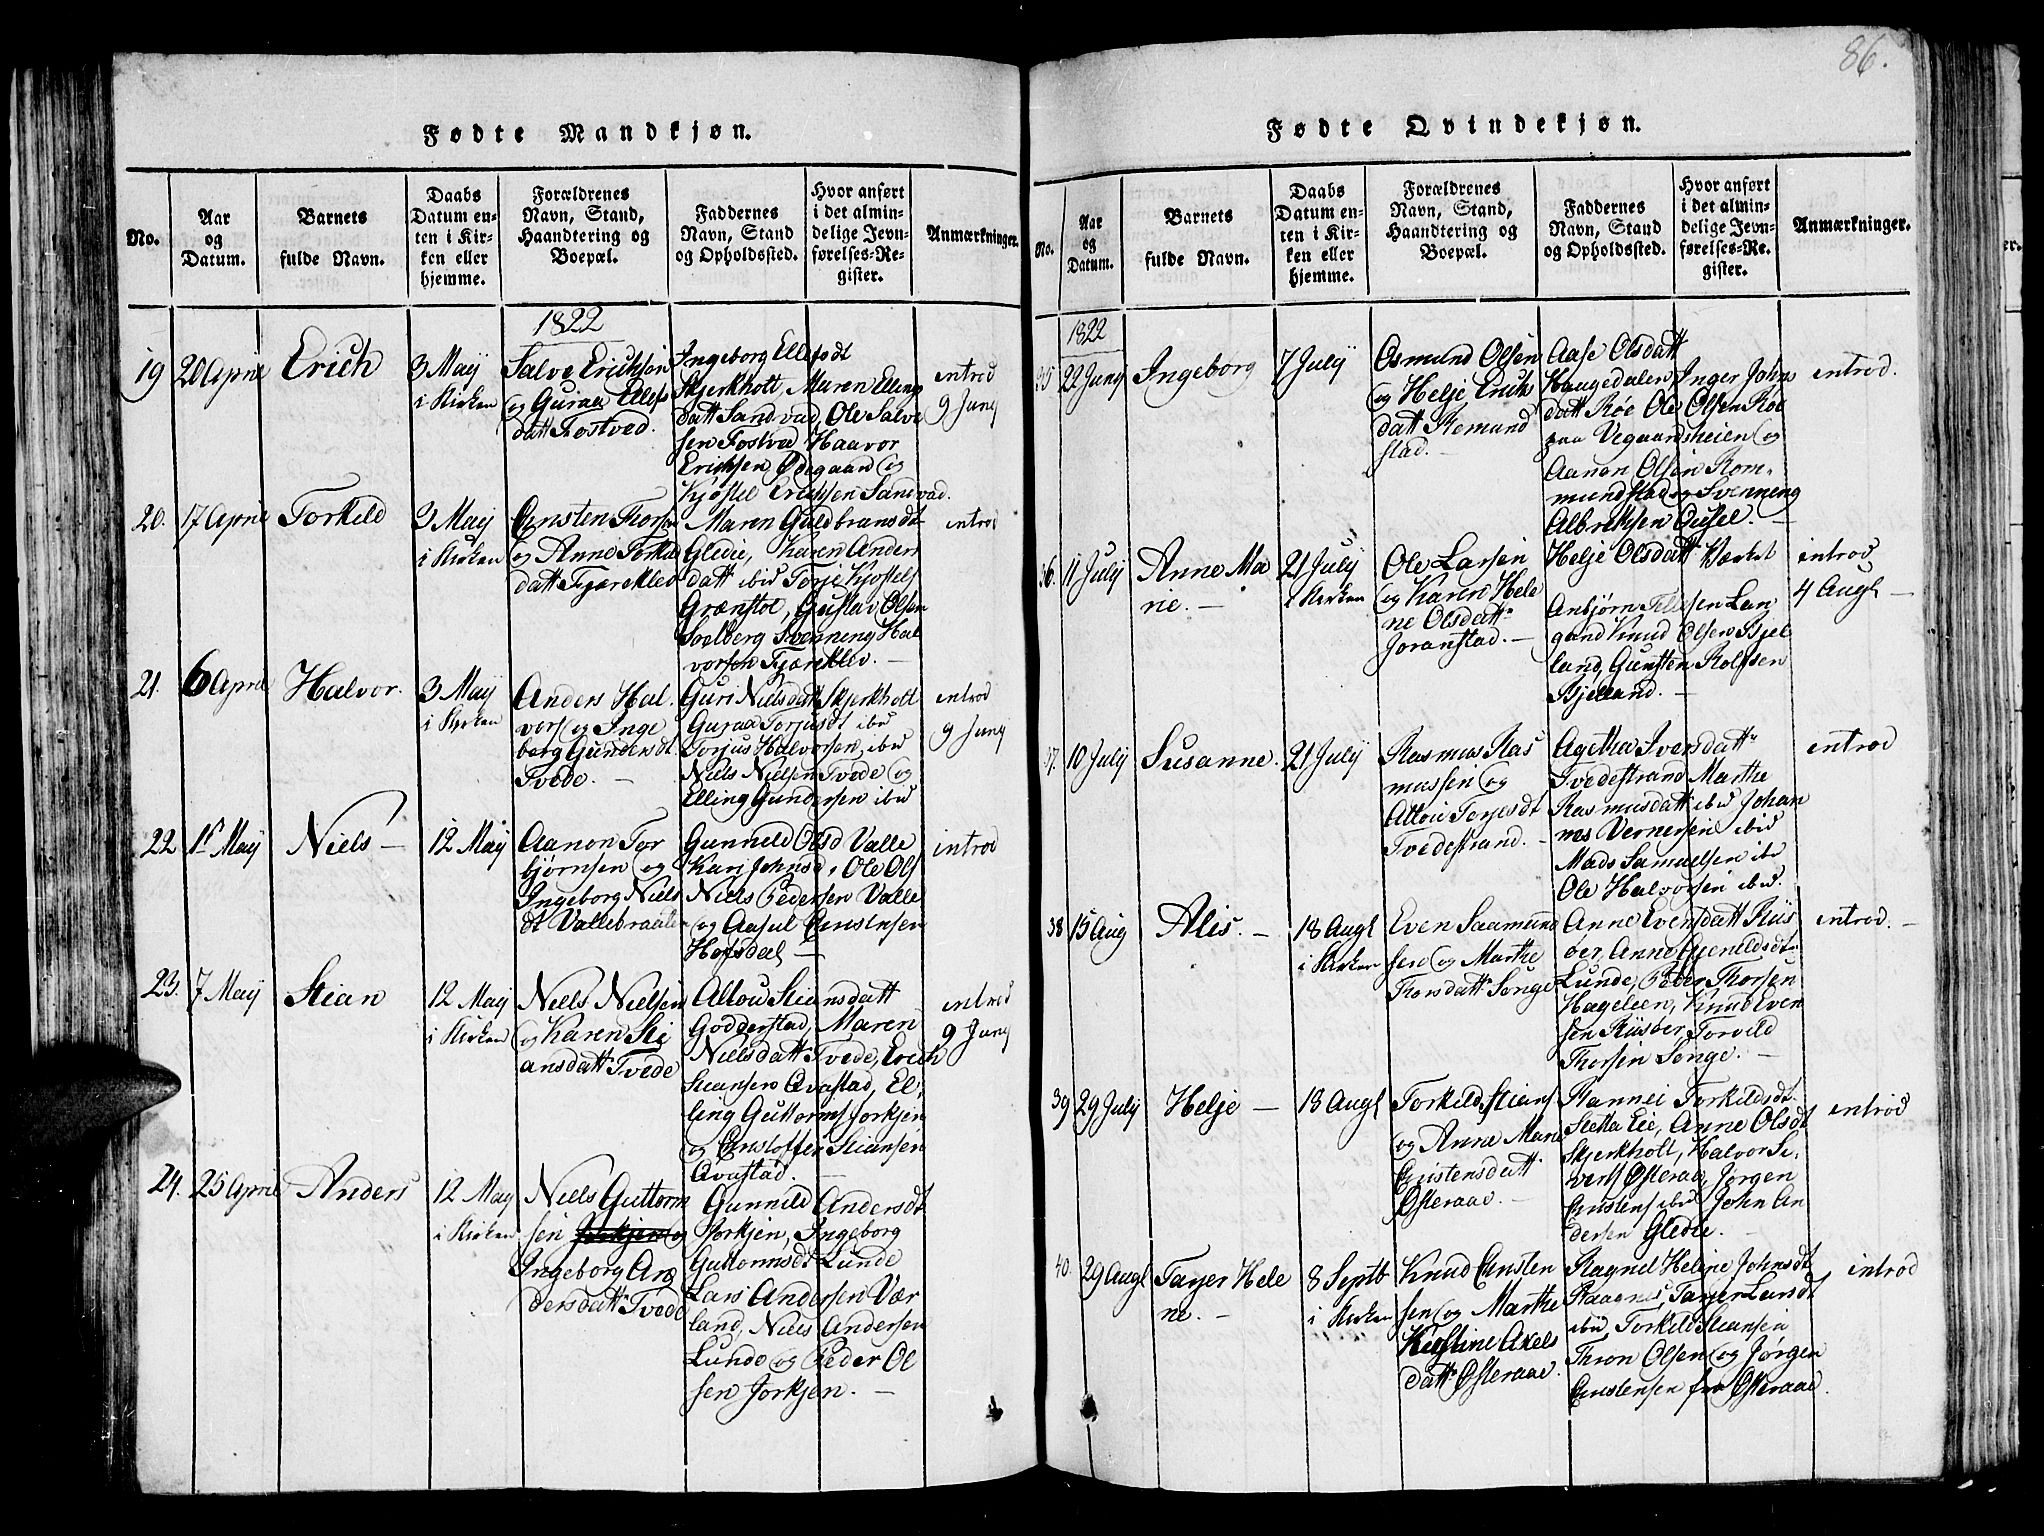 86.
Fødte Mandkjøn.
No.
Aar
og
Datum.
Barnets
fulde Navn.
Daabs
Datum en-
ten i Kir-
ken eller
hjemme.
Forældrenes
Navn, Stand,
Haandtering og
Boepæl.
Faddernes
Navn, Stand
og Opholdssted.
Hvor anført
i det almin-
delige Jevn-
førelses-Re-
gister.
Anmærkninger.
1822
19
20 April
Erich
3 Maij
i Kirken
Salve Erichsen
og Guraa Ellefs
datt Fostved.
Ingeborg Ellefsdt
Skjerkholt, Maren Elling
datt Sandvad, Ole Salve
sen Fostved Haavor
Erichsen Ødegaard og
Kjøstel Erichsen Sandvad.
introd
9 Junij
20.
17 April
Torkild
3 Maij
i Kirken
Christen Thorsen
og Anne Torkil
datt Fjæreklev
Maren Guldbransdt
Gledie, Karen Anders
datt ibid Torje Kjøstels
Grønstøl, Gustav Olsen
Solberg Svenning Hal
vorsen Fjæreklev.
introd
21.
6 April
Halvor.
3 Maij
i Kirken
Anders Hal
vors og Inge
borg Gundersdt
Tvede.
Guri Nielsdatt Skjerkholt
Guraa Torjusdt ibid
Torjus Halvorsen ibid
Niels Nielsen Tvede og
Elling Gundersen ibid
introd
9 Junij
22
1st Maij
Niels
12 Maij
Aanon Tor
bjørnsen og
Ingeborg Niels
dt Vallebraate
Gunneld Olsd Valle
Kari Johnsd, Ole Ols
Niels Pedersen Valle
og Aasul Christensen
Hofsdal
introd
23.
7 Maij
Stian
12 Maij
i Kirken
Niels Nielsen
og Karen Sti
ansdatt Tvede
Allou Stiansdatt
Godderstad, Maren
Nielsdatt Tvede, Erich
Stiansen Qvastad, El-
ling Guttorms Jorkjen
og Christoffer Stiansen
Qvastad.
introd
9 Junij
24.
25 April
Anders
12 Maij
i Kirken
Niels Guttorm
sen Jorkjen og
Ingeborg An
dersdatt Tvede
Gunnild Andersdt
Jorkjen, Ingeborg
Guttormsdt Lunde
Lars Andersen Vær
land, Niels Andersen
Lunde og Peder Ol
sen Jorkjen.
Fødte Qvindekjøn.
No.
Aar
og
Datum.
Barnets
fulde Navn.
Daabs
Datum en-
ten i Kir-
ken eller
hjemme.
Forældrenes
Navn, Stand,
Haandtering og
Boepæl.
Faddernes
Navn, Stand
og Opholdssted.
Hvor anført
i det almin-
delige Jevn-
førelses-Re-
gister.
Anmærkninger.
1822
35
22 Junij
Ingeborg
7 Julij
Osmund Olsen
og Helje Erichs
datt Romund
stad.
Aase Olsdatt
Haugedalen Inger Johns
datt Røe Ole Olsen Røe
paa Vegaardsheien og
Aanon Olsen Rom-
mundstad og Svenning
Albrethsen Ousel.
introd.
36.
11 Julij
Anne Ma
rie.
21 Julij
i Kirken
Ole Larsen
og Karen Hele
ne Olsdatt
Joranstad.
Helje Olsdatt Værket
Anbjørn Tellefsen Lan
gand Knud Olsen Bjel
land, Gunsten Rolfsen
Bjelland.
introd
4 Augl
37.
10 Julij
Susanne.
21 Julij
Rasmus Ras
mussen og
Allou Torjesdt
Tvedestrand.
Agetha Iversdatt
Tvedestrand Marthe
Rasmusdatt ibid Johan
nes Vernersen ibid
Mads Samuelsen ib
Ole Halvorsen ibid.
introd
38
15 Aug
Alis.
18 Augl
i Kirken
Even Saamund
sen og Marthe
Thorsdatt Songe
Anne Evensdatt Riis
ber, Anne Gjeruldsdt
Lunde, Peder Thorsen
Hageleen, Knud Even
sen Riisber, Torvild
Thorsen Songe.
introd.
39
29 Julij
Helje
18 Augl
Torkild Stians
og Anne Marie
Christensdatt
Østeraae.
Rannei Torkildsdt
Sletta Eie, Anne Olsdt
Skjerkholt, Halvor Si-
vers Østeraae, Jørgen
Christens ibid John An
dersen Gledie.
introd
40.
29 Augl
Tarjer Hele
ne.
8 Septb
i Kirken
Knud Christen
sen og Marthe
Kirstine Axels
datt Østeraae.
Ragnel Helene Johnsdt
Raagnes, Tarjer Lundt
ibid, Torkild Stiansen
Thron Olsen og Jørgen
Christensen fra Østeraae.
introd